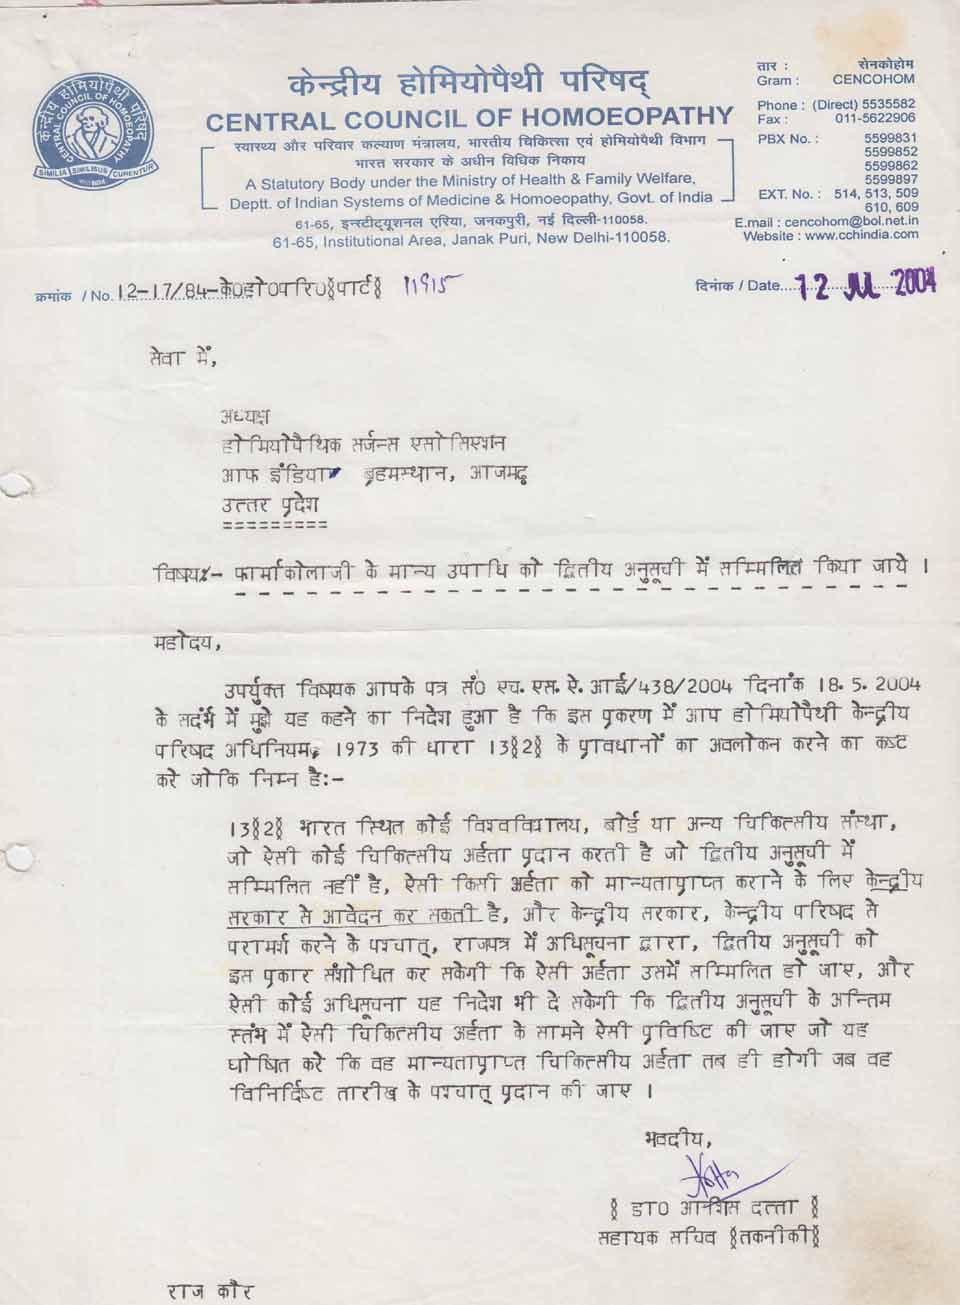 केन्द्रीय होमियोपैथी परिषद्
CENTRAL COUNCIL OF HOMOEOPATHY
स्वास्थ्य और परिवार कल्याण मंत्रालय, भारतीय चिकित्सा एवं होमियोपैथी विभाग
भारत सरकार के अधीन विधिक निकाय
A Statutory Body under the Ministry of Health & Family Welfare,
Deptt. of Indian Systems of Medicine & Homoeopathy, Govt. of India
61-65, इन्स्टीट्यूशनल एरिया, जनकपुरी, नई दिल्ली-110058.
61-65, Institutional Area, Janak Puri, New Delhi-110058.
केन्द्रीय होमियोपैथी परिषद्
CENTRAL COUNCIL OF HOMOEOPATHY
SIMILIA SIMILIBUS CURENTUR
तार : सेनकोहोम
Gram : CENCOHOM
Phone : (Direct) 5535582
Fax : 011-5622906
PBX No. : 5599831
5599852
5599862
5599897
EXT. No. : 514, 513, 509
610, 609
E.mail : cencohom@bol.net.in
Website : www.cchindia.com
क्रमांक / No. 12-17/84-के0हो0परि0§पार्ट§ 11915
दिनांक / Date.... 12 JUL 2004
सेवा में,
अध्यक्ष
होमियोपैथिक सर्जन्स एसोसिएशन
आफ इंडिया ब्रहमस्थान, आजमढ़
उत्तर प्रदेश
=========
विषयः- फार्माकोलाजी के मान्य उपाधि को द्वितीय अनुसूची में सम्मिलित किया जाये ।
महोदय,
उपर्युक्त विषयक आपके पत्र सं0 एच. एस. ऐ. आई/438/2004 दिनांक 18. 5. 2004
के सदर्भ में मुझे यह कहने का निदेश हुआ है कि इस प्रकरण में आप होमियोपैथी केन्द्रीय
परिषद अधिनियम, 1973 की धारा 13§2§ के प्रावधानों का अवलोकन करने का कष्ट
करे जोकि निम्न है:-
13§2§ भारत स्थित कोई विश्वविद्यालय, बोर्ड या अन्य चिकित्सीय संस्था,
जो ऐसी कोई चिकित्सीय अर्हता प्रदान करती है जो द्वितीय अनुसूची में
सम्मिलित नहीं है, ऐसी किसी अर्हता को मान्यताप्राप्त कराने के लिए केन्द्रीय
सरकार से आवेदन कर सकती है, और केन्द्रीय सरकार, केन्द्रीय परिषद से
परामर्श करने के पश्चात्, राजपत्र में अधिसूचना द्वारा, द्वितीय अनुसूची को
इस प्रकार संशोधित कर सकेगी कि ऐसी अर्हता उसमें सम्मिलित हो जाए, और
ऐसी कोई अधिसूचना यह निदेश भी दे सकेगी कि द्वितीय अनुसूची के अन्तिम
स्तंभ में ऐसी चिकित्सीय अर्हता के सामने ऐसी प्रविष्टि की जाए जो यह
घोषित करे कि वह मान्यताप्राप्त चिकित्सीय अर्हता तब ही होगी जब वह
विनिर्दिष्ट तारीख के पश्चात् प्रदान की जाए ।
भवदीय,
§ डा0 आशिस दत्ता §
सहायक सचिव §तकनीकी§
राज कौर